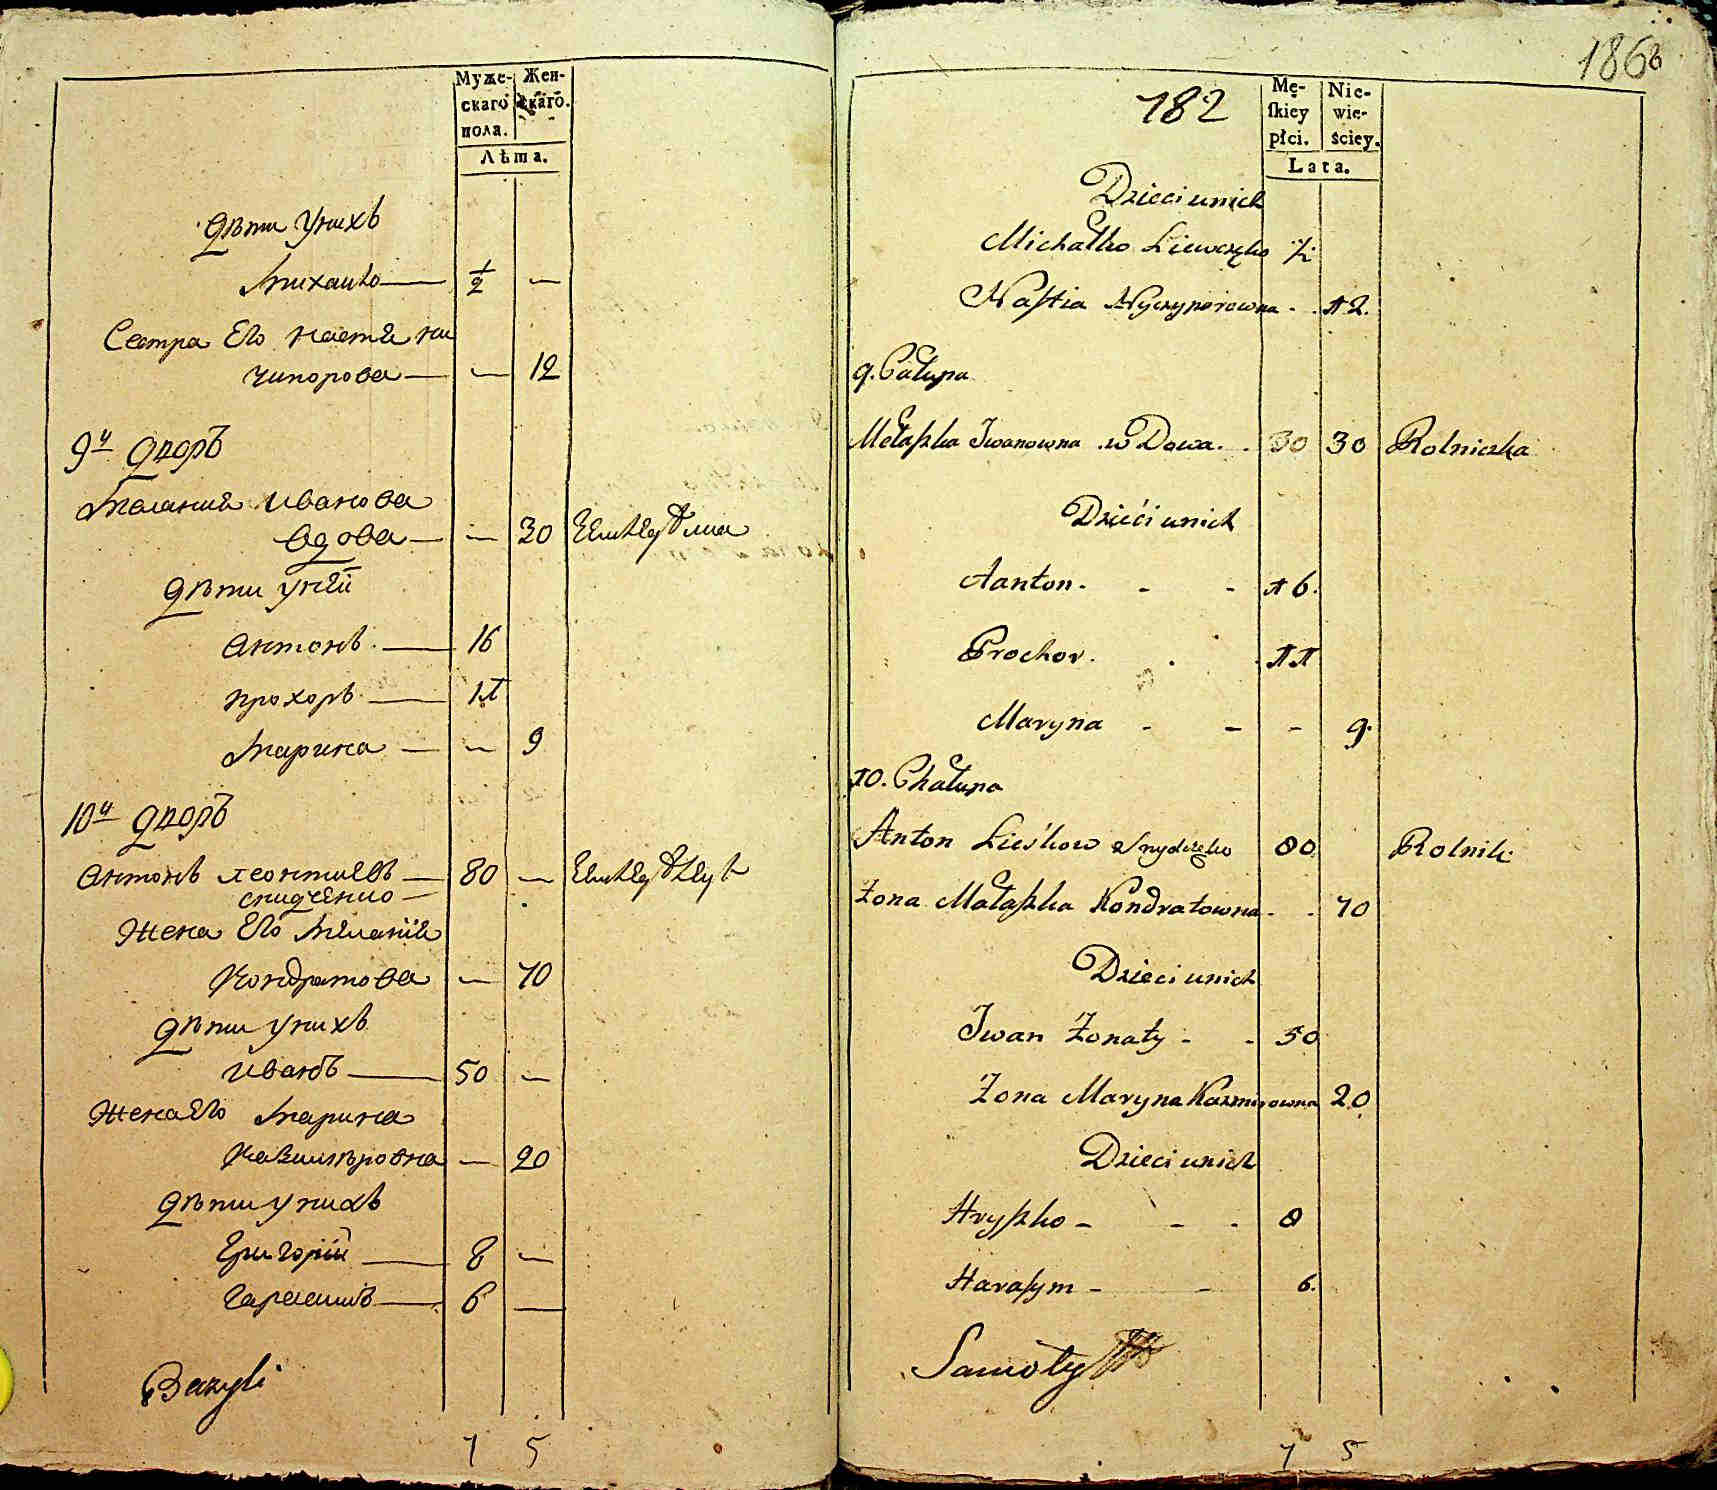 Муже- Жен-
скаго скаго.
пола.
Лѣта.
Дѣти у нихъ
Михайло — 1/2 —
Сестра Его Настя Ни
чипорова — — 12
9й Дворъ
Малания Иванова
вдова — — 30
Дѣти у ней
Антонъ — 16
Прохоръ — 11
Марина — — 9
10й Дворъ
Антонъ Леонтиевъ — 80 —
Жена Его Мелания
Кондратова — 70
Дѣти у нихъ
Иванъ — 50 —
Жена Его Марина
Казимировна — 20
Дѣти у нихъ
Григорий — 8 —
Гарасимъ — 6 —
Bazyli
7 5
1868
182
Mę- Nie-
skiey wie-
płci. ściey.
Lata.
Dzieci unich
Michałko Liewczęko 1/2
Nastia Nyczyporowna - . 12.
9. Całupa
Mełaszka Iwanowna w Dowa. . 30 30 Rolniczka
Dzieći unich
Aanton - - - 16.
Prochor . . . 11
Maryna - - - 9.
10. Chałupa
Anton Lieśkow Snydczęko 80 Rolnik
Żona Małaszka Kondratowna - . 70
Dzieci unich
Iwan Żonaty - - 50
Żona Maryna Kazmirowna 20
Dzieci unich
Hryszko - - - 8
Harasym - - 6.
Samoty
7 5